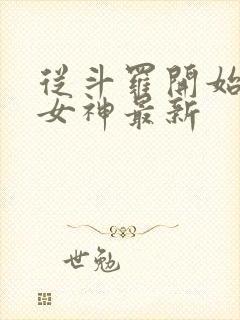 從斗羅開始
女神最新
世勉